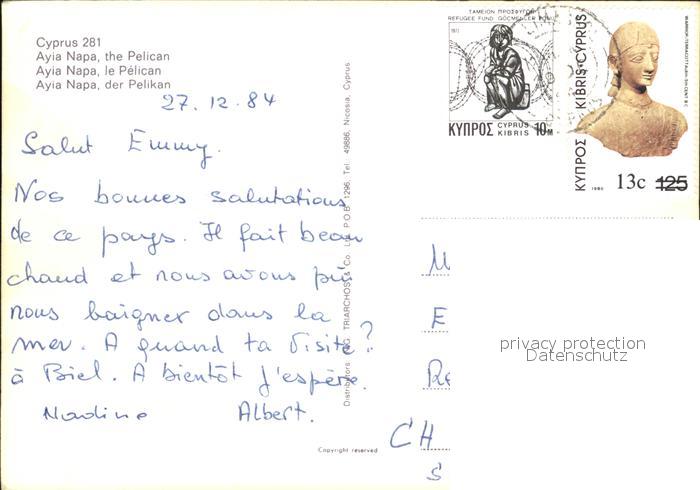 Cyprus 281
Ayia Napa, the Pelican
Ayia Napa, le Pélican
Ayia Napa, der Pelikan
27.12.84
Salut Emmy.
Nos bonnes salutations
de ce pays. Il fait beau
chaud et nous avons pu
nous baigner dans la
mer. A quand ta visite?
à Biel. A bientôt j'espère.
Nadine Albert.
Distributors G. TRIARCHOS & Co. Ltd. P.O.B. 1296, Tel. 49886, Nicosia, Cyprus
Copyright reserved
ΤΑΜΕΙΟΝ ΠΡΟΣΦΥΓΩΝ
REFUGEE FUND GÖÇMENLER FONU
1977
ΚΥΠΡΟΣ CYPRUS KIBRIS 10M
ΚΥΠΡΟΣ KIBRIS·CYPRUS
1980
13c 125
M
E
Re
CH
S
privacy protection
Datenschutz